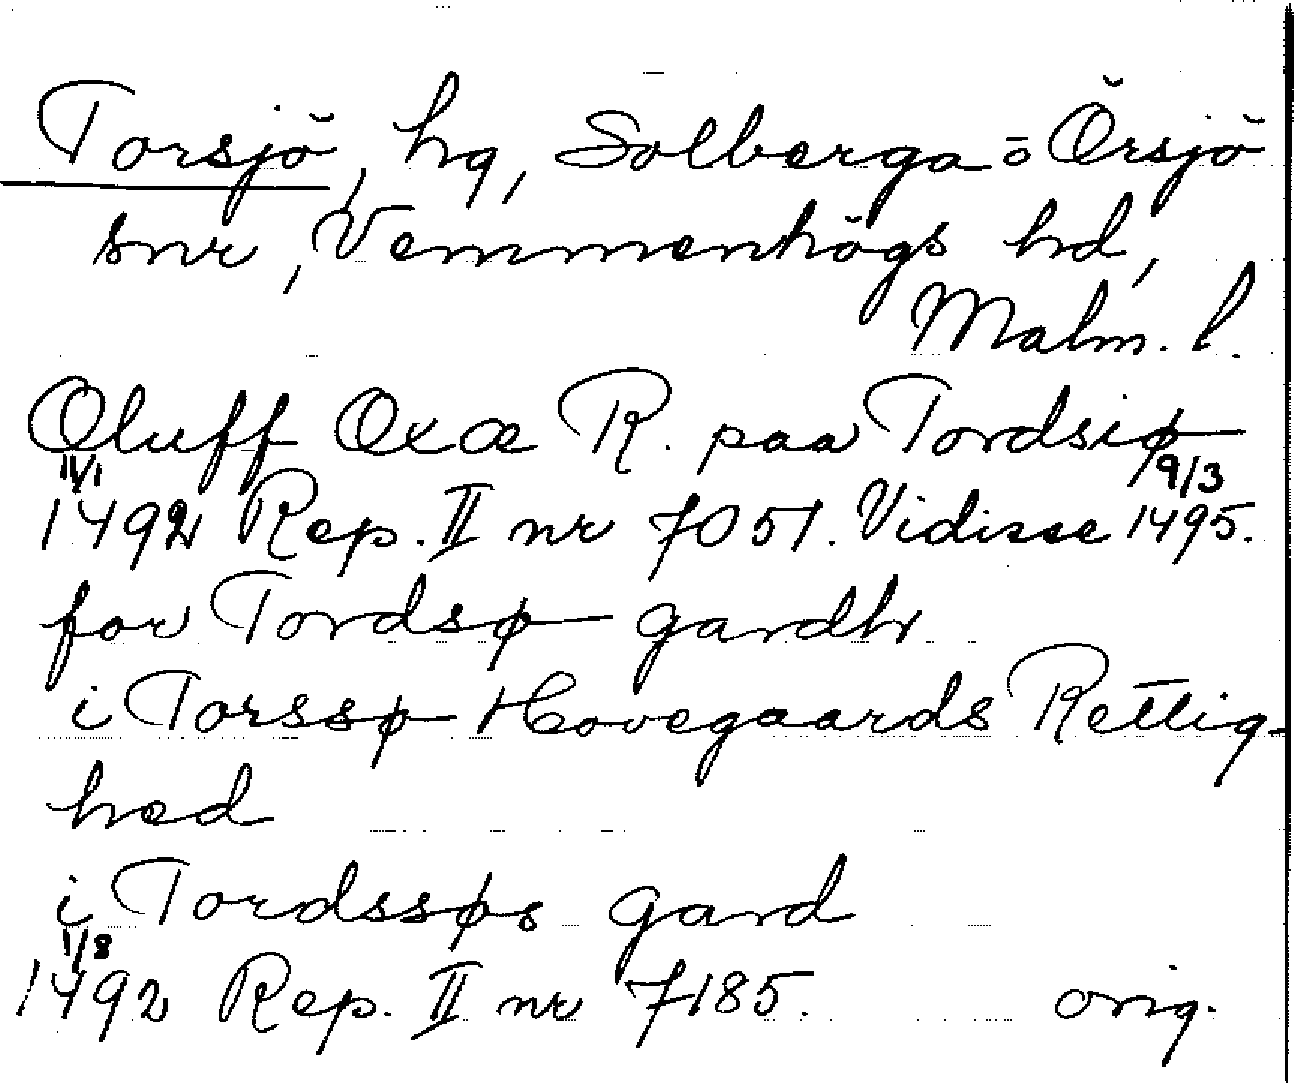 Torsjö, hg, Solberga = Örsjö
snr, Vemmenhögs hd,
Malm. l.
Oluff Oxæ R. paa Tordsiø
11/1 9/3
1492 Rep. II nr 7051. Vidisse 1495.
for Tordsø gardh
i Torssø Hovegaards Rettig-
hed
i Tordssøs gard
1/8
1492 Rep. II nr 7185. orig.